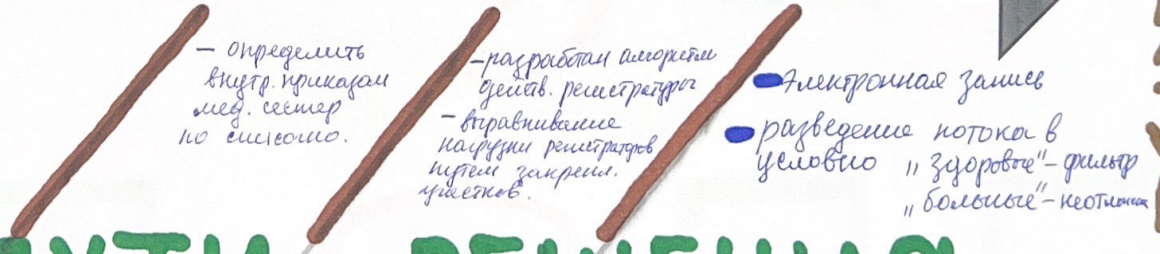 - определить
внутр. приказом
мед. сестер
по списку.
-разработан алгоритм
действ. регистратуры
-выравнивание
нагрузки регистраторов
путем закрепл.
участков.
Электронная запись
разведение потока в
условно „здоровые"-фильтр
„больные"-неотложка
ПУТИ РЕШЕНИЯ